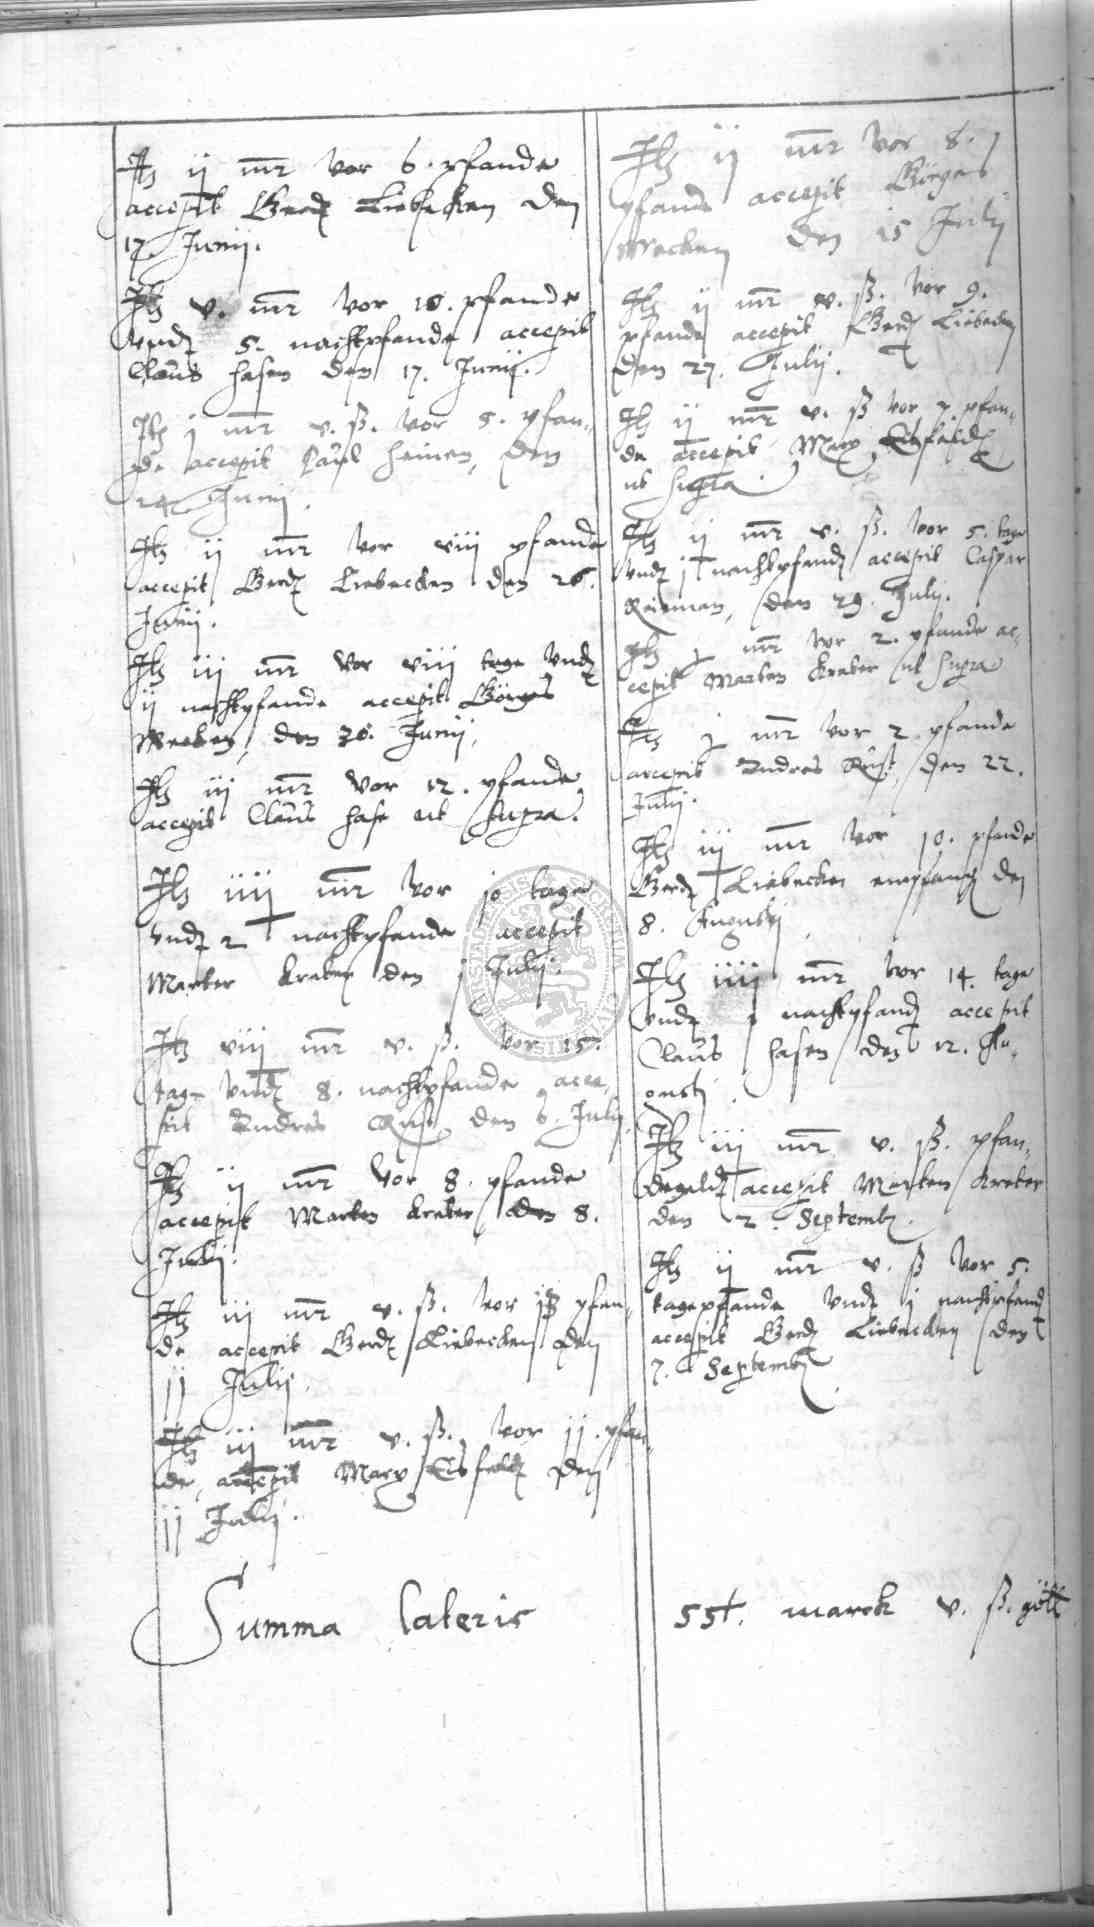 Itz ij mr vor 6. pfande
accepit Berdt Liebecken den
17. Junij.
Itz v. mr vor 16. pfande
vndt 5. nachtpfande accepit
Claus Hasen den 17. Junij.
Itz j mr v. ß. vor 5. pfan-
de accepit Paul Heinen, den
Junij.
Itz ij mr vor viij pfande
accepit Berdt Liebecken den 26.
Junij.
Itz iij mr vor viij tage vndt
ij nachtpfande accepit Görges
Mecken, den 30. Junij,
Itz iij mr vor 12. pfande
accepit Claus Hase ut supra.
Itz iiij mr vor 10 tage
vndt 2 nachtpfande accepit
Marten Kreter den j Julij.
Itz viij mr v. ß. vor 15.
tag- vndt 8. nachtpfande, acce-
pit Andres Rust den 6. July.
Itz ij mr vor 8. pfande
accepit Marten Kreter den 8.
Julij.
Itz iij mr v. ß. vor pfan-
de accepit Berdt Liebecken den
11 Julij.
Itz iij mr v. ß. vor 11. pfan-
de, accepit Marx Elsfeldt den
11 Julij.
Itz ij mr vor 8.
pfand accepit Görges
Mecken den 15 Julij
Itz ij mr v. ß. vor 9.
pfande accepit Berdt Liebecken
den 27. Julij.
Itz ij mr v. ß vor 7. pfan-
de accepit Marx Elsfeldt
ut supra.
Itz ij mr v. ß. vor 5. tage
vndt j nachtpfandt accepit Caspar
Reineman, den 29. Julij.
Itz j mr vor 2. pfande ac-
cepit Marten Kreter ut supra
Itz j mr vor 2 pfande
accepit Andres Rust, den 22.
Julij.
Itz iij mr vor 10. pfande
Berdt Liebecken empfangen den
8. Augusti
Itz iiij mr vor 14. tage
vndt j nachtpfandt accepit
Claus Hasen den 12. Au-
gusti.
Itz iij mr v. ß. pfan-
degeldt accepit Marten Kreter
den 2. Septemb.
Itz ij mr v. ß vor 5.
tagepfande vndt j nachtpfandt
accepit Berdt Liebecken den
7. Septemb.
Summa Lateris 55½. marck v. ß. gött